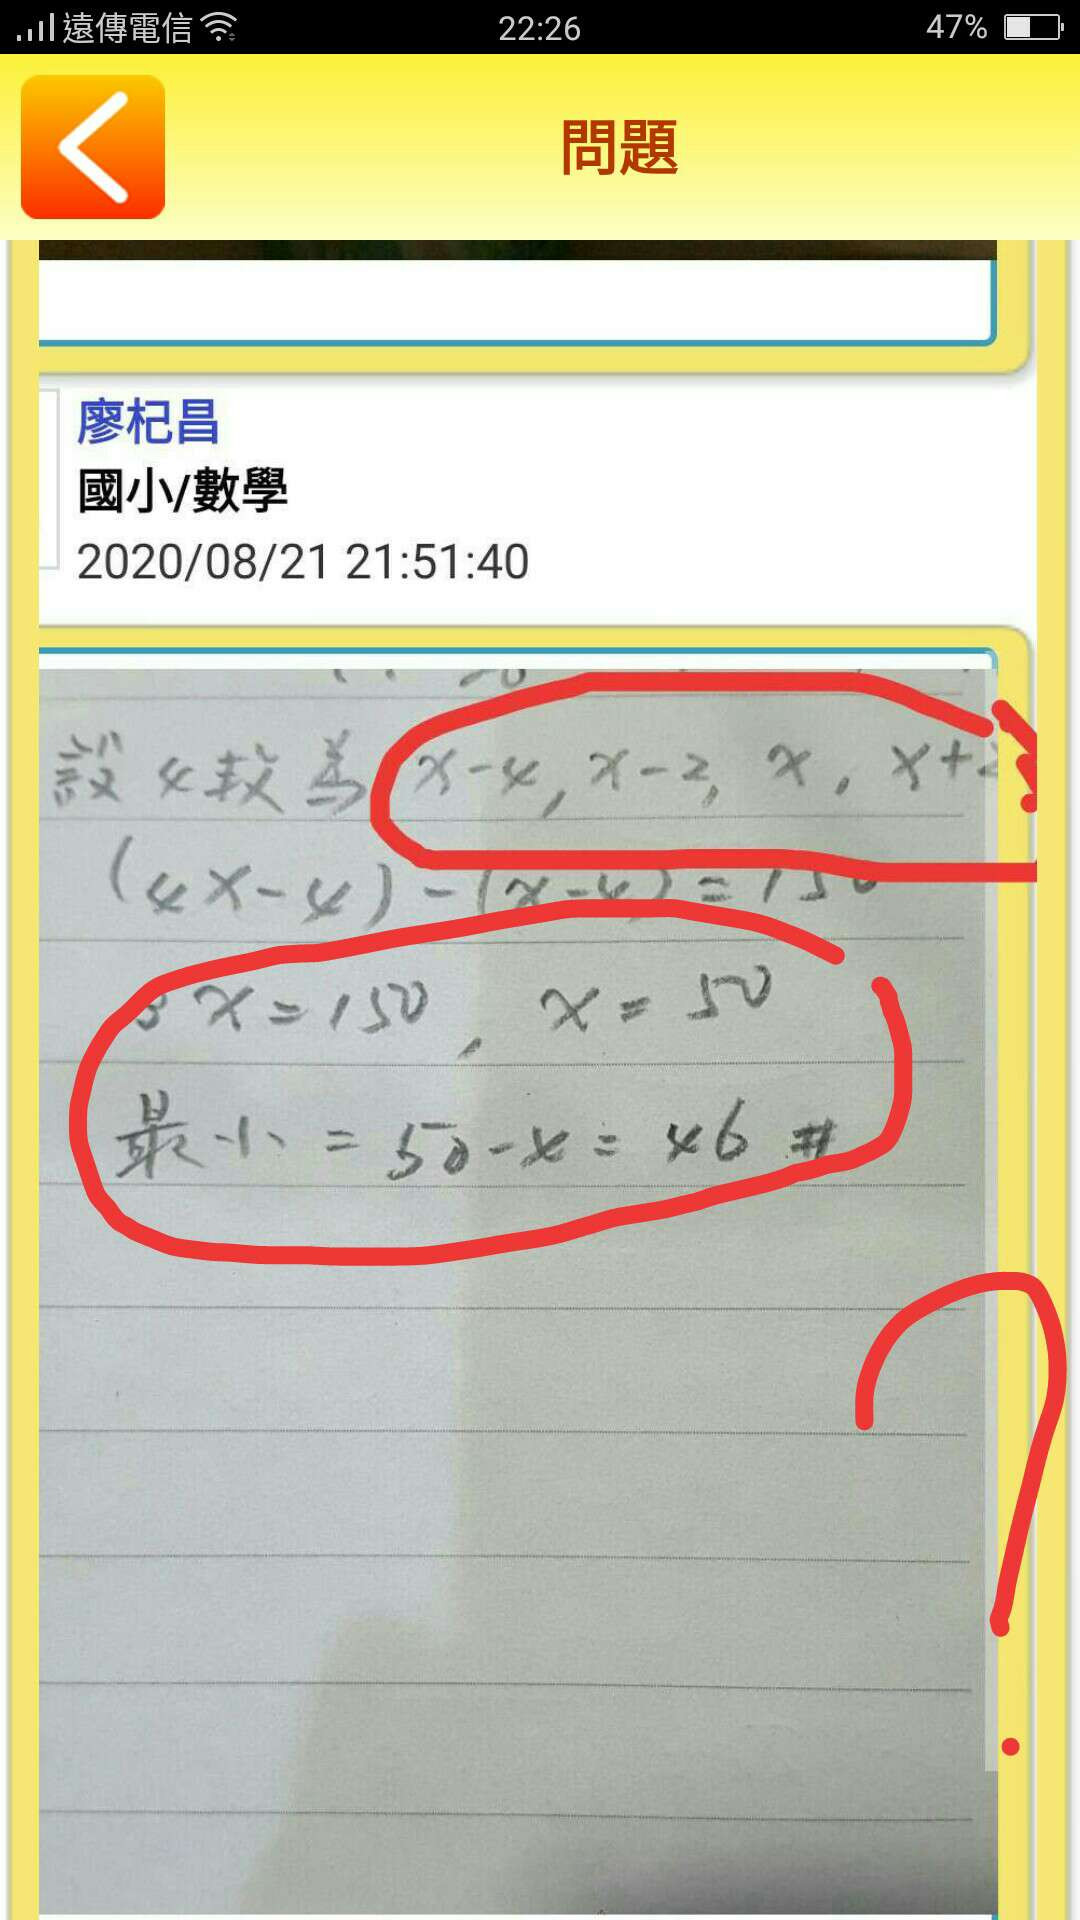 遠傳電信 22:26 47%
問題
廖杞昌
國小/數學
2020/08/21 21:51:40
設4数為 x-4, x-2, x, x+2
(4x-4)-(x-4)=150
3x=150, x=50
最小=50-4=46 #